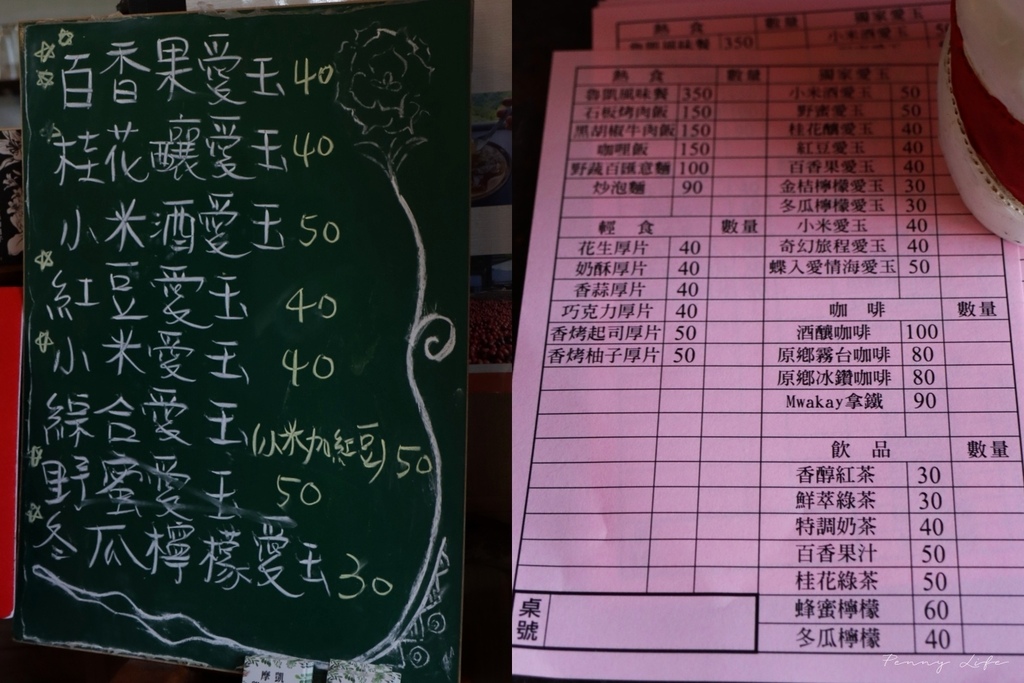 百香果愛玉 40
桂花釀愛玉 40
小米酒愛玉 50
紅豆愛玉 40
小米愛玉 40
綜合愛玉(小米加紅豆) 50
野蜜愛玉 50
冬瓜檸檬愛玉 30
熱 食 數量 獨家愛玉
魯凱風味餐 350 小米酒愛玉 50
熱 食 數量 獨家愛玉
魯凱風味餐 350 小米酒愛玉 50
石板烤肉飯 150 野蜜愛玉 50
黑胡椒牛肉飯 150 桂花釀愛玉 40
咖哩飯 150 紅豆愛玉 40
野蔬百匯意麵 100 百香果愛玉 40
炒泡麵 90 金桔檸檬愛玉 30
冬瓜檸檬愛玉 30
輕 食 數量 小米愛玉 40
花生厚片 40 奇幻旅程愛玉 40
奶酥厚片 40 蝶入愛情海愛玉 50
香蒜厚片 40
巧克力厚片 40 咖 啡 數量
香烤起司厚片 50 酒釀咖啡 100
香烤柚子厚片 50 原鄉霧台咖啡 80
原鄉冰鑽咖啡 80
Mwakay拿鐵 90
飲 品 數量
香醇紅茶 30
鮮萃綠茶 30
特調奶茶 40
百香果汁 50
桂花綠茶 50
桌號 蜂蜜檸檬 60
冬瓜檸檬 40
Penny Life